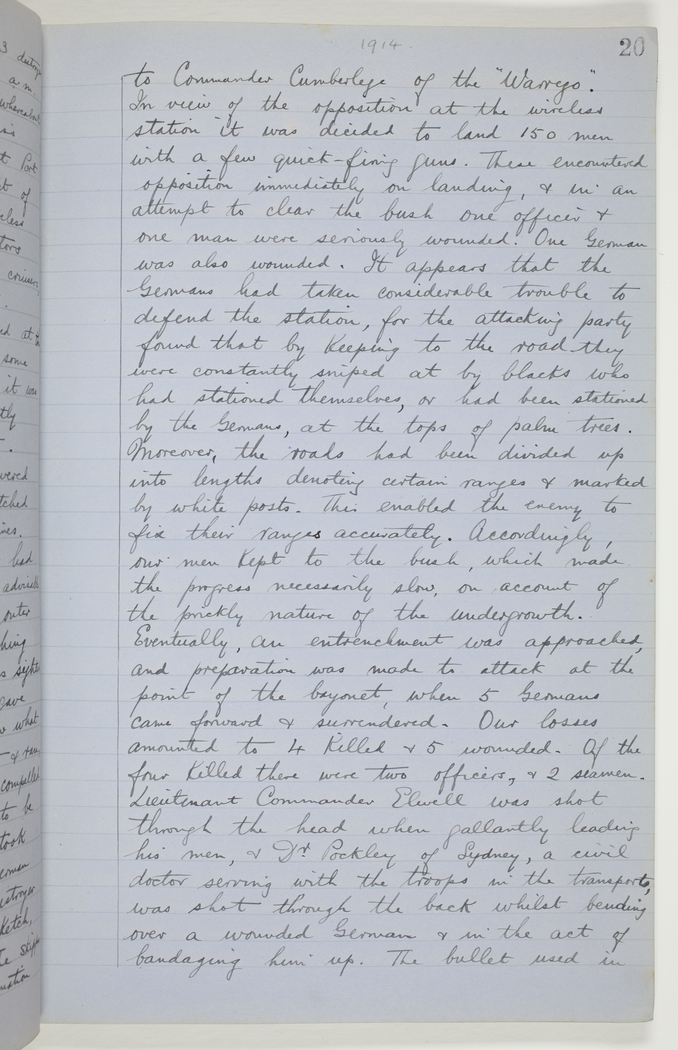 1914.
20
to Commander Cumberlege of the "Warrego".
In view of the opposition at the wireless
station it was decided to land 150 men
with a few quick-firing guns. These encountered
opposition immediately on landing, & in an
attempt to clear the bush one officer &
one man were seriously wounded. One German
was also wounded. It appears that the
Germans had taken considerable trouble to
defend the station, for the attacking party
found that by keeping to the road they
were constantly sniped at by blacks who
had stationed themselves, or had been stationed
by the Germans, at the tops of palm trees.
Moreover, the roads had been divided up
into lengths denoting certain ranges & marked
by white posts. This enabled the enemy to
fix their ranges accurately. Accordingly,
our men kept to the bush, which made
the progress necessarily slow, on account of
the prickly nature of the undergrowth.
Eventually, an entrenchment was approached,
and preparation was made to attack at the
point of the bayonet, when 5 Germans
came forward & surrendered. Our losses
amounted to 4 killed & 5 wounded. Of the
four killed there were two officers, & 2 seamen.
Lieutenant Commander Elwell was shot
through the head when gallantly leading
his men, & Dr. Pockley of Sydney, a civil
doctor serving with the troops in the transports,
was shot through the back whilst bending
over a wounded German & in the act of
bandaging him up. The bullet used in